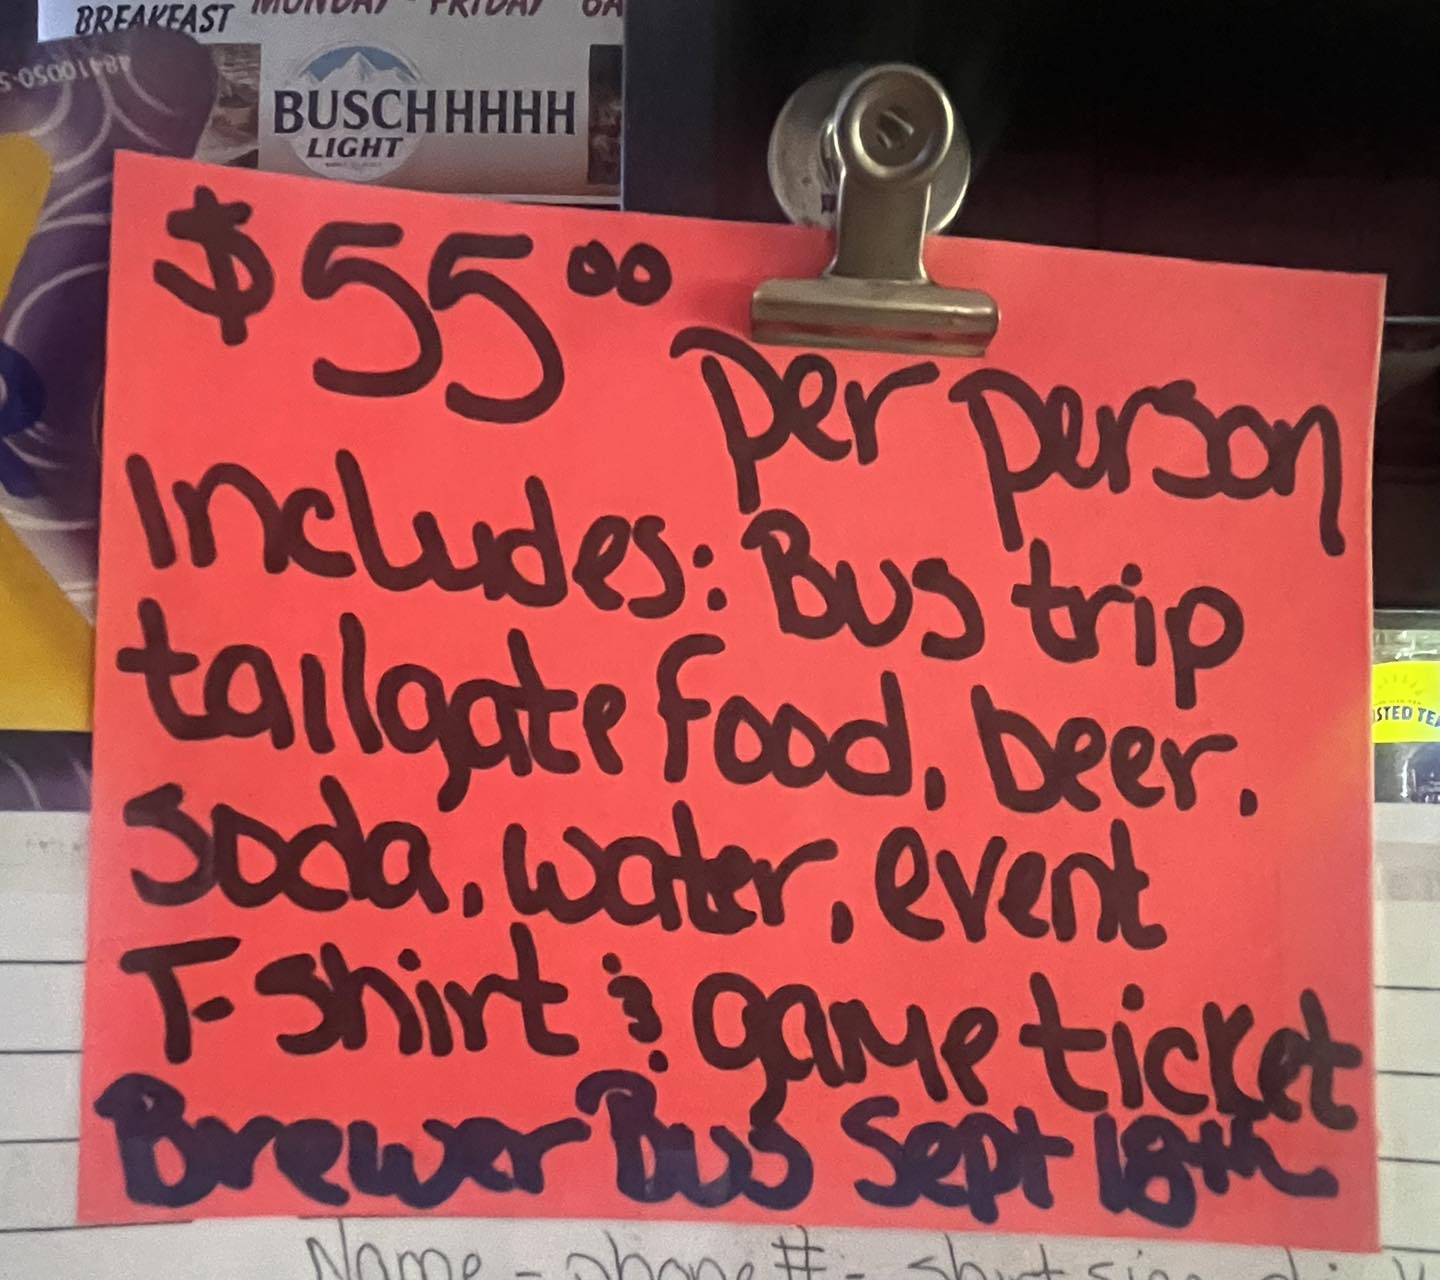 BREAKFAST MONDAY - FRIDAY 6A
48410050-5
BUSCHHHHH
LIGHT
$55.00
per person
Includes: Bus trip
tailgate food, beer,
soda, water, event
T-shirt & game ticket
Brewer Bus Sept 18th
STED TEA
Name - phone # - shirt size